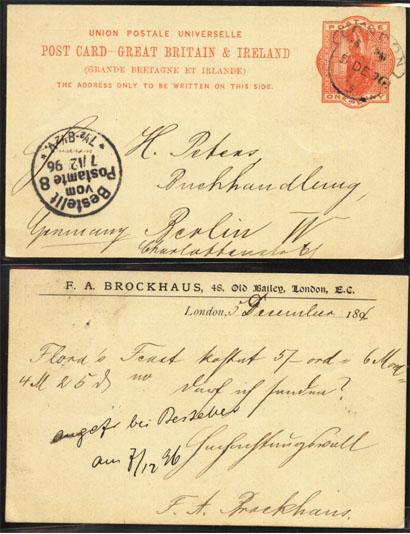 UNION POSTALE UNIVERSELLE
POST CARD–GREAT BRITAIN & IRELAND
(GRANDE BRETAGNE ET IRLANDE)
THE ADDRESS ONLY TO BE WRITTEN ON THIS SIDE.
POSTAGE
LONDON
5 DE 96
Bestellt
vom
Postamte 8
7/12 96
7½-8½V.
H. Peters,
Buchhandlung,
Germany Berlin W
F. A. BROCKHAUS, 48, Old Bailey, London, E.C.
London, 5 December 1896
Flora's Feast kostet 5/- ord =
4 M 25 darf ich senden?
bei Besteller
am 7/12 96
Hochachtungsvoll
F. A. Brockhaus.